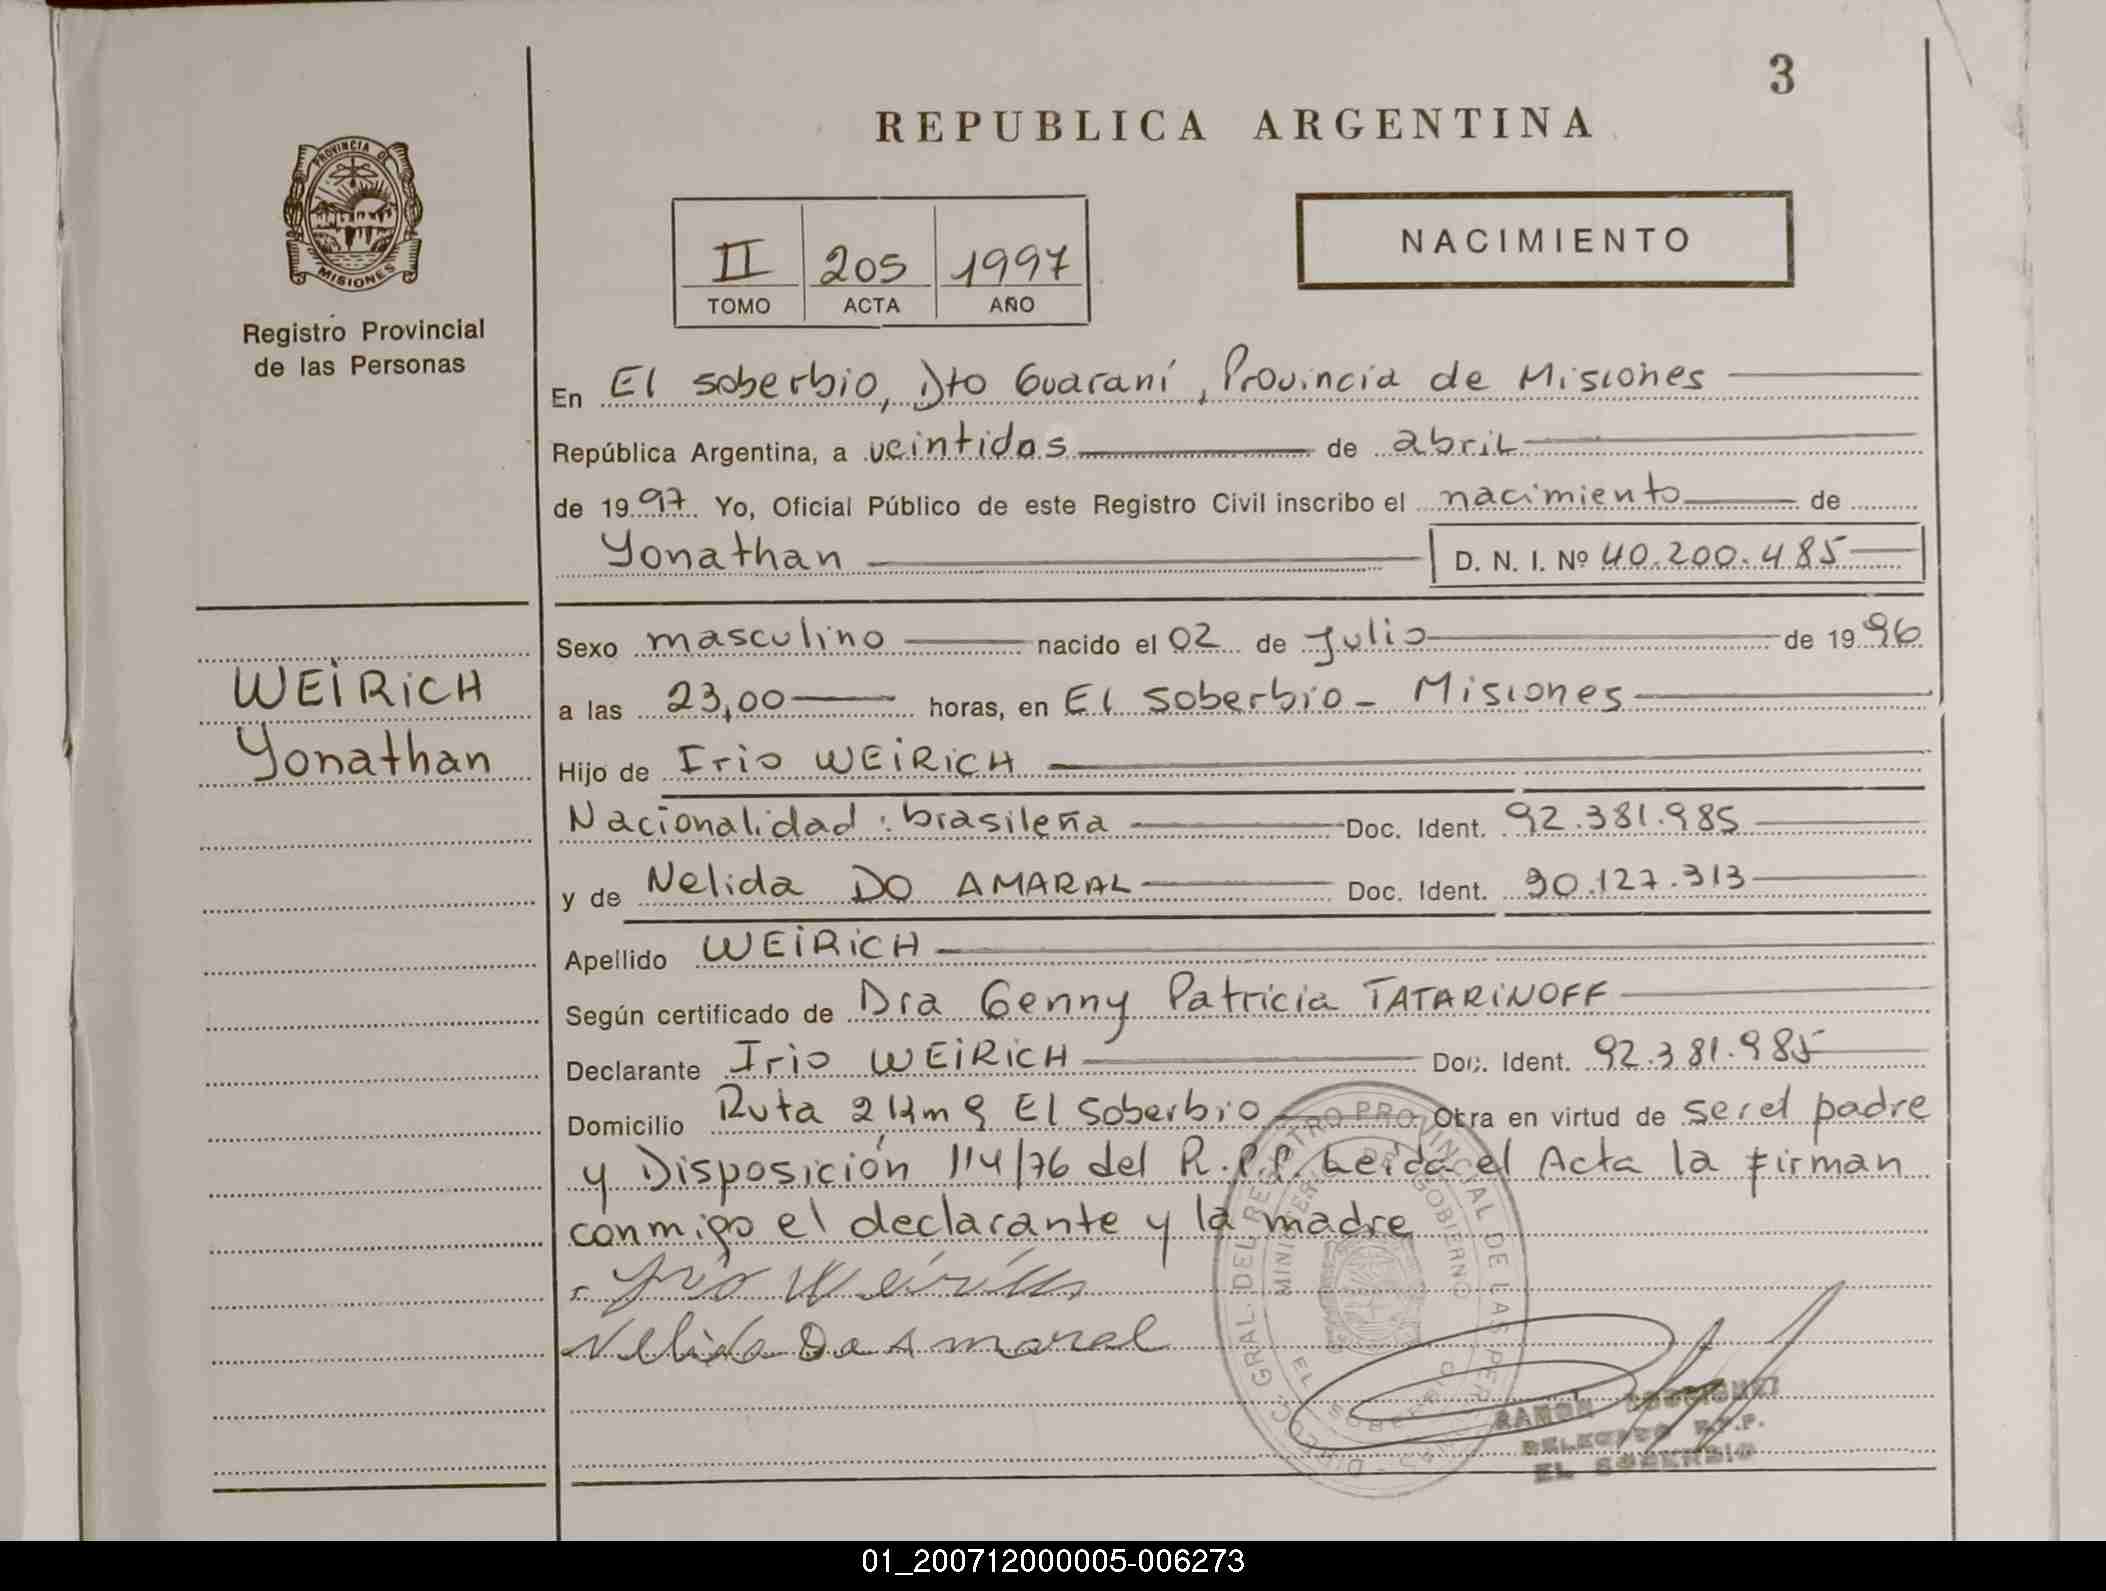 3
REPUBLICA ARGENTINA
PROVINCIA DE
MISIONES
Registro Provincial
de las Personas
II 205 1997
TOMO ACTA AÑO
NACIMIENTO
En El Soberbio, Dto Guaraní, Provincia de Misiones
República Argentina, a veintidos de abril
de 1997 Yo, Oficial Público de este Registro Civil inscribo el nacimiento de
Yonathan D. N. I. Nº 40.200.485
Sexo masculino nacido el 02 de Julio de 1996
WEIRICH
a las 23,00 horas, en El Soberbio - Misiones
Yonathan
Hijo de Irio WEIRICH
Nacionalidad: brasileña Doc. Ident. 92.381.985
y de Nelida DO AMARAL Doc. Ident. 90.127.313
Apellido WEIRICH
Según certificado de Dra Genny Patricia TATARINOFF
Declarante Irio WEIRICH Doc. Ident. 92.381.985
Domicilio Ruta 2 Km 9 El Soberbio Obra en virtud de ser el padre
y Disposición 114/76 del R.P.P. Leída el Acta la firman
conmigo el declarante y la madre
Irio Weirich
Nelida Do Amaral
DIRECC. GRAL. DEL REGISTRO PROVINCIAL DE LAS PERSONAS
MINISTERIO DE GOBIERNO
EL SOBERBIO
RAMON RODRIGUEZ
DELEGADO R.P.P.
EL SOBERBIO
01_200712000005-006273